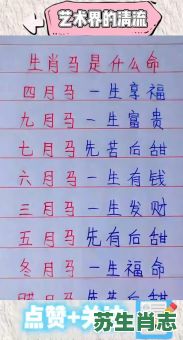 艺术界的清流
生肖马是什么命
四月马 一生享福
九月马 一生富贵
七月马 先苦后甜
六月马 一生有钱
三月马 一生发财
五月马 先有后甜
冬月马 一生福命
点赞+关
苏生肖志